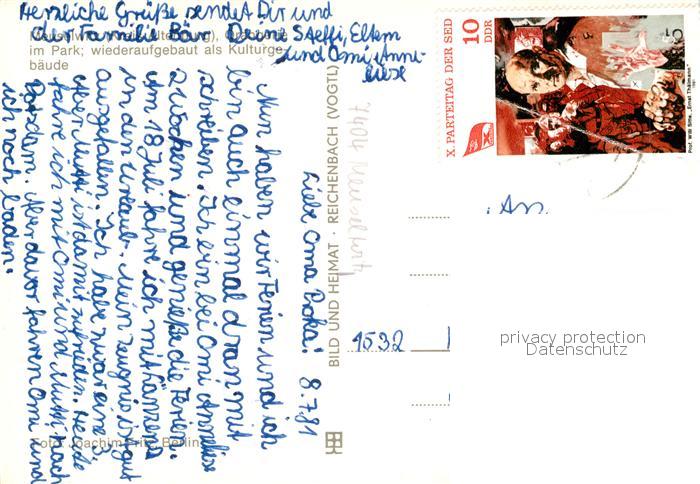 Herzliche Grüße sendet Dir und
der Familie Bär Deine Steffi, Eltern
und Omi Anne-
liese
im Park; wiederaufgebaut als Kulturge-
bäude
Liebe Oma Proka! 8.7.81
Nun haben wir Ferien und ich
bin auch einmal dran mit
schreiben. Ich bin bei Omi Anneliese
2 Wochen und genieße die Ferien.
Am 18. Juli fahre ich mit
in den Urlaub. Mein Zeugnis ist gut
ausgefallen. Ich habe zwar eine 3,
aber Mutti ist damit zufrieden. Heute
fahre ich mit Omi und Mutti nach
Potsdam. Aber davor fahren Omi und
ich noch baden.
Foto: Joachim Fritz, Berlin
BILD UND HEIMAT · REICHENBACH (VOGTL)
7404 Meuselwitz
X. PARTEITAG DER SED
10
DDR
Prof. Willi Sitte, „Ernst Thälmann"
An
1532
privacy protection
Datenschutz